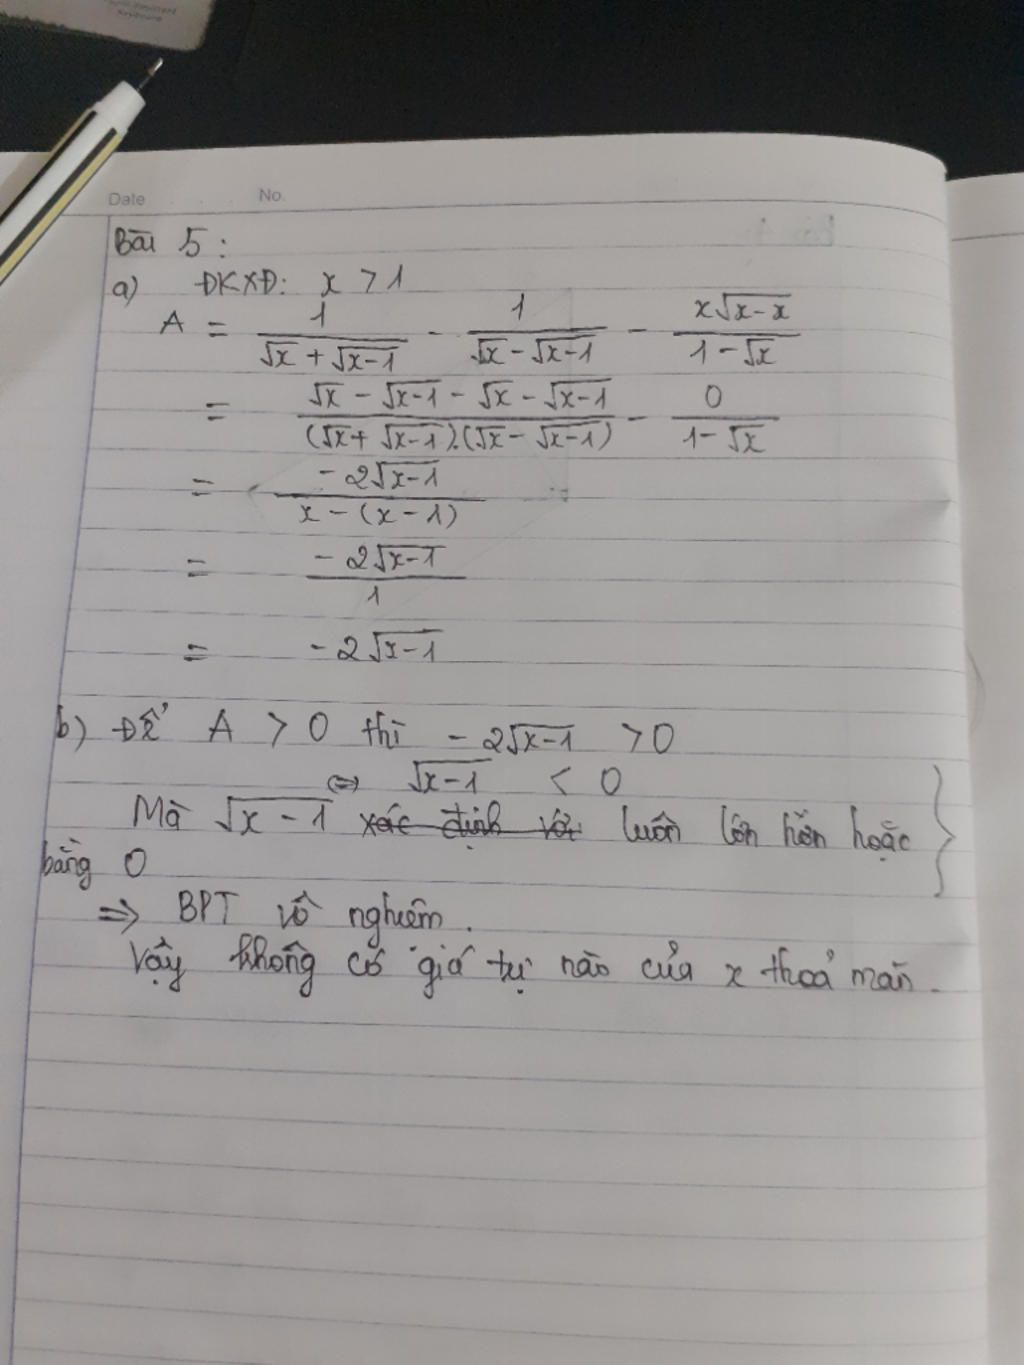 Date No.
Bài 5:
a) ĐKXĐ: x > 1
A = 1/(√x + √(x-1)) - 1/(√x - √(x-1)) - x√(x-x)/(1-√x)
= (√x - √(x-1) - √x - √(x-1))/((√x + √(x-1)).(√x - √(x-1))) - 0/(1-√x)
= -2√(x-1)/(x-(x-1))
= -2√(x-1)/1
= -2√(x-1)
b) Để A > 0 thì -2√(x-1) > 0
⇔ √(x-1) < 0
Mà √(x-1) xác định với luôn lớn hơn hoặc
bằng 0
⇒ BPT vô nghiệm.
Vậy không có giá tị nào của x thoả mãn.